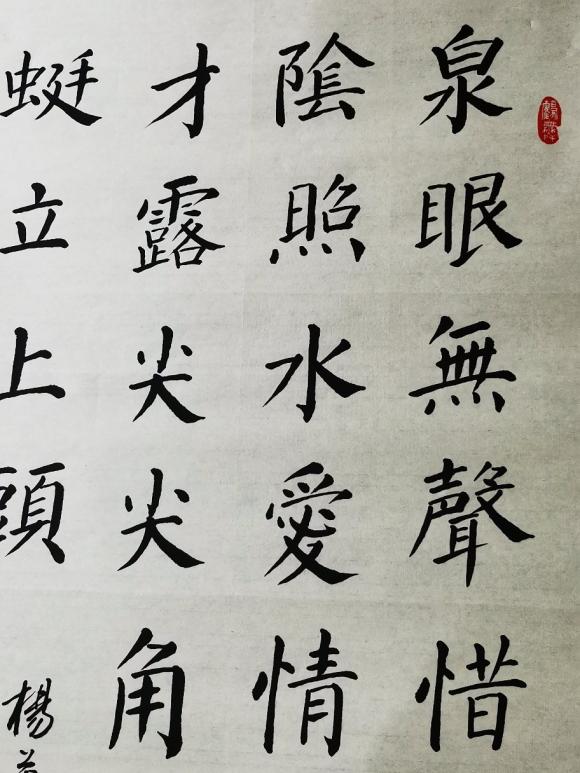 泉眼無聲惜
陰照水愛情
才露尖尖角
蜓立上頭
楊